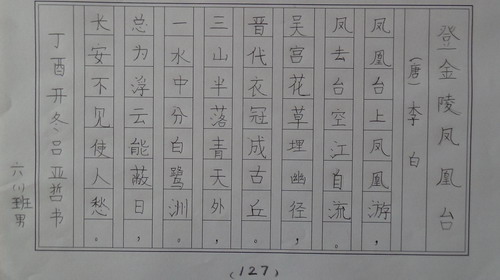 登金陵凤凰台
(唐) 李白
凤凰台上凤凰游，
凤去台空江自流。
吴宫花草埋幽径，
晋代衣冠成古丘。
三山半落青天外，
一水中分白鹭洲。
总为浮云能蔽日，
长安不见使人愁。
丁酉开冬、吕亚哲书
六(1)班男
(127)